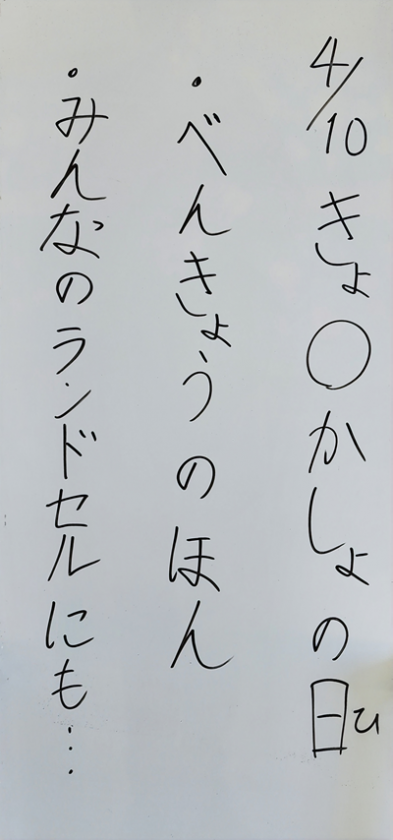 4/10 きょ○かしょの日ひ
・べんきょうのほん
・みんなのランドセルにも…